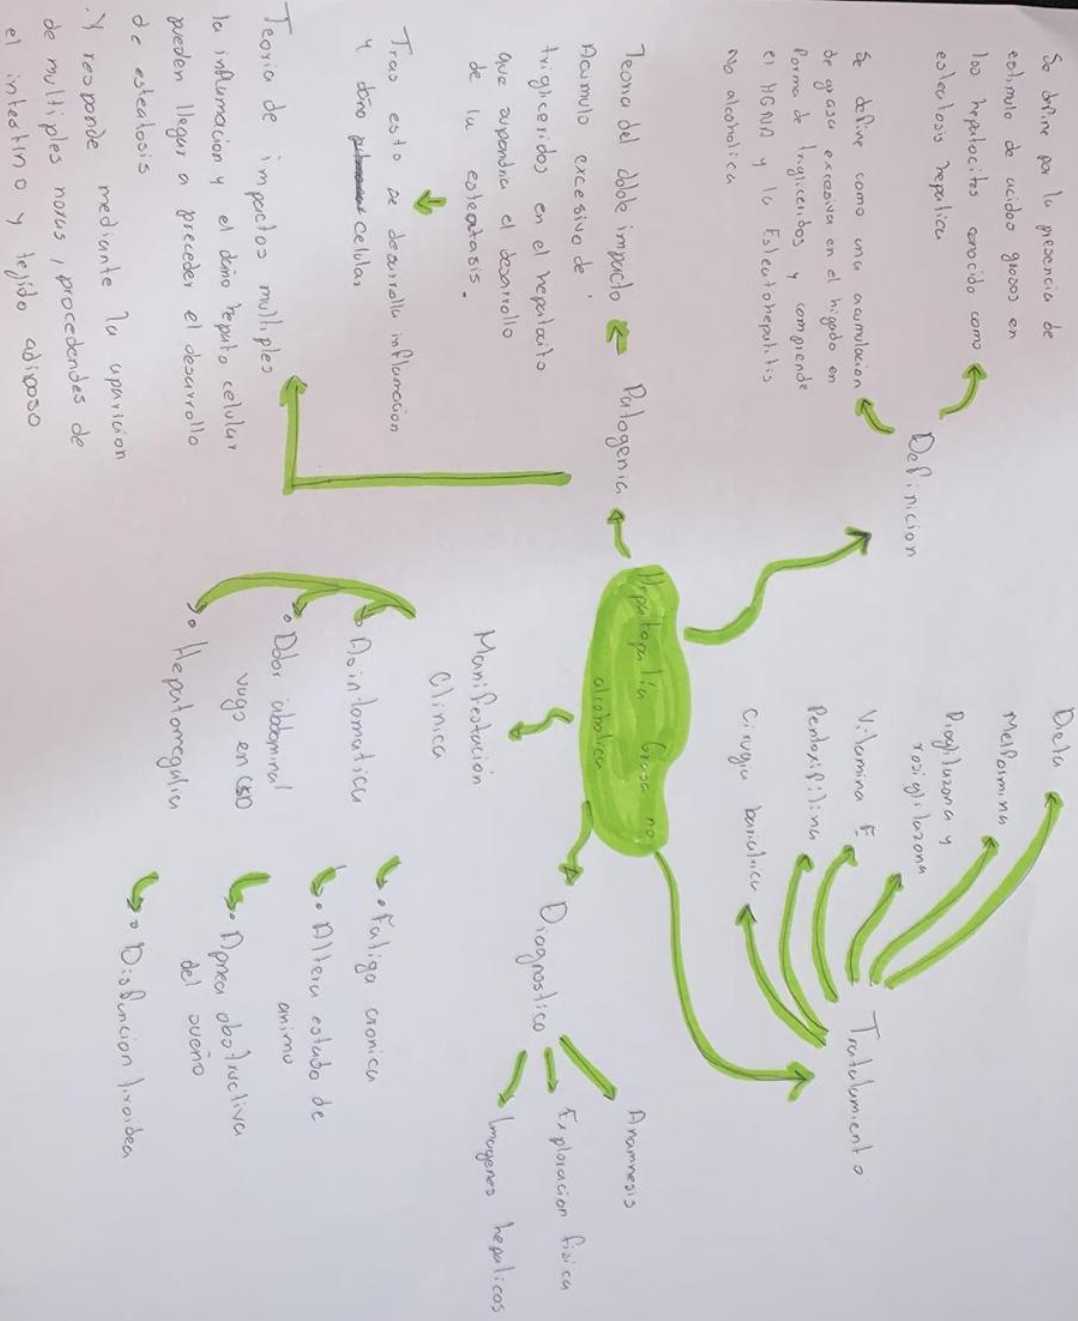 Hepatopatia Grasa no
alcoholica
Definicion
Se define por la presencia de
estimulo de acidos grasos en
los hepatocitos conocido como
esteatosis hepatica
Se define como una acumulacion
de grasa excesiva en el higado en
forma de trigliceridos y comprende
el HGNA y la Esteatohepatitis
no alcoholica
Patogenia
Teoria del doble impacto
Acumulo excesivo de
trigliceridos en el hepatocito
que supondria el desarrollo
de la esteatasis.
Tras esto se desarrolla inflamacion
y daño celular
Teoria de impactos multiples
la inflamacion y el daño hepato celular
pueden llegar a preceder el desarrollo
de esteatosis
. Y responde mediante la aparicion
de multiples noxas, procedendes de
el intestino y tejido adiposo
Manifestación
Clinica
• Asintomatica
• Dolor abdominal
vago en CSD
• Hepatomegalia
• Fatiga cronica
• Altera estado de
animo
• Apnea obstructiva
del sueño
• Disfuncion tiroidea
Diagnostico
Anamnesis
Exploracion fisica
Imagenes hepaticas
Tratatamiento
Dieta
Metformina
Pioglitazona y
rosiglitazona
Vitamina E
Pentoxifilina
Cirugia bariatrica